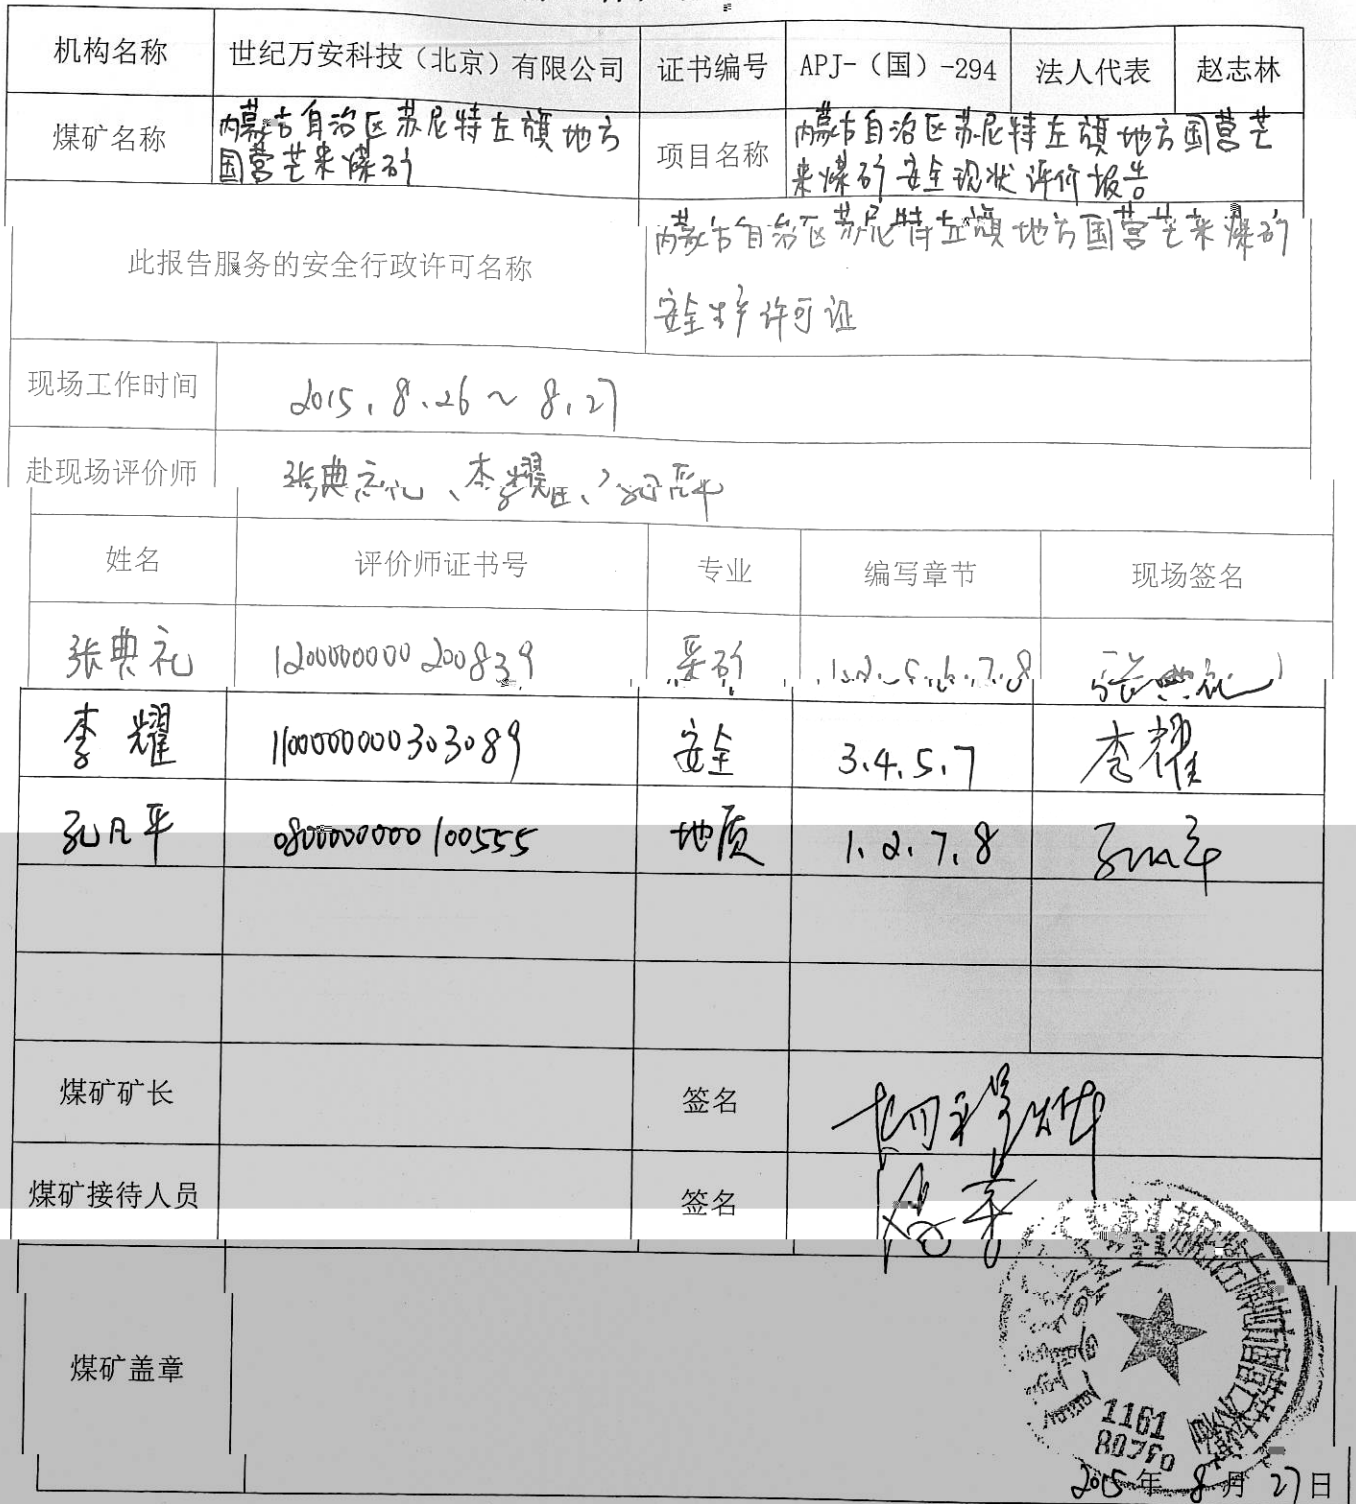 机构名称 世纪万安科技（北京）有限公司 证书编号 APJ-（国）-294 法人代表 赵志林
煤矿名称 内蒙古自治区苏尼特左旗地方
国营芒来煤矿
项目名称 内蒙古自治区苏尼特左旗地方国营芒
来煤矿安全现状评价报告
此报告服务的安全行政许可名称 内蒙古自治区苏尼特左旗地方国营芒来煤矿
安全生产许可证
现场工作时间 2015.8.26～8.27
赴现场评价师 张典礼、李耀
姓名 评价师证书号 专业 编写章节 现场签名
张典礼 1200000000200839 采矿 1.2.5.6.7.8 张典礼
李耀 1100000000303089 安全 3.4.5.7 李耀
孔凡平 0800000000100555 地质 1.2.7.8 孔凡平
煤矿矿长 签名
煤矿接待人员 签名
煤矿盖章
1161
2015年8月27日